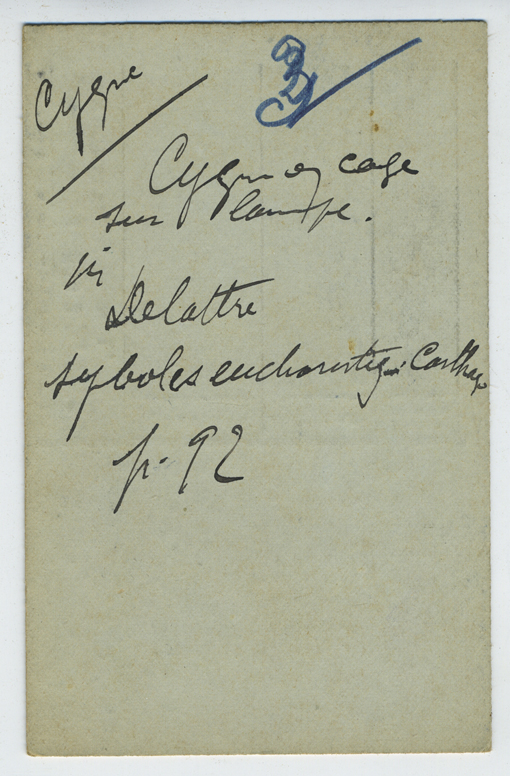 Cygne
Cygne en cage
sur lampe.
in
Delattre
syboles eucharistiq. Carthage
p. 92